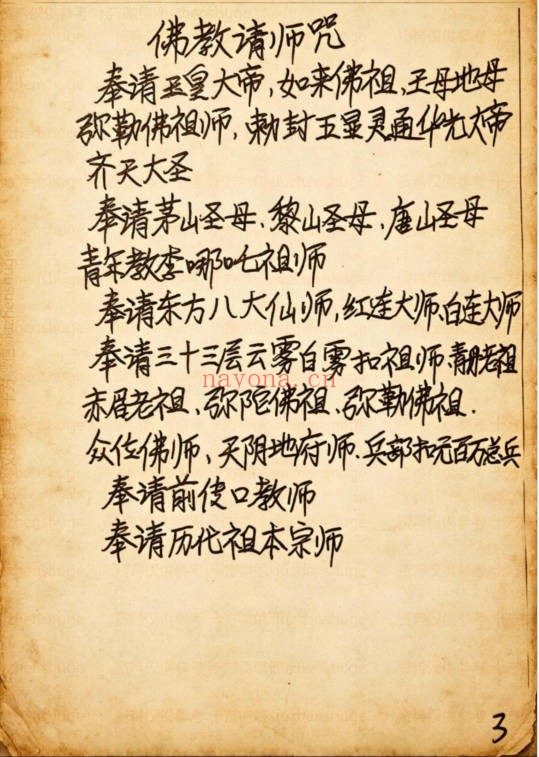 佛教请师咒
奉请玉皇大帝,如来佛祖,王母地母
弥勒佛祖师,勅封五显灵通华光大帝
齐天大圣
奉请茅山圣母、黎山圣母、唐山圣母
青年教李哪吒祖师
奉请东方八大仙师,红连大师、白连大师
奉请三十三层云雾白雾扣祖师、老祖
赤眉老祖、弥陀佛祖、弥勒佛祖.
众位佛师、天阴地府师、兵部扣元百万总兵
奉请前传口教师
奉请历代祖本宗师
nayona.cn
3